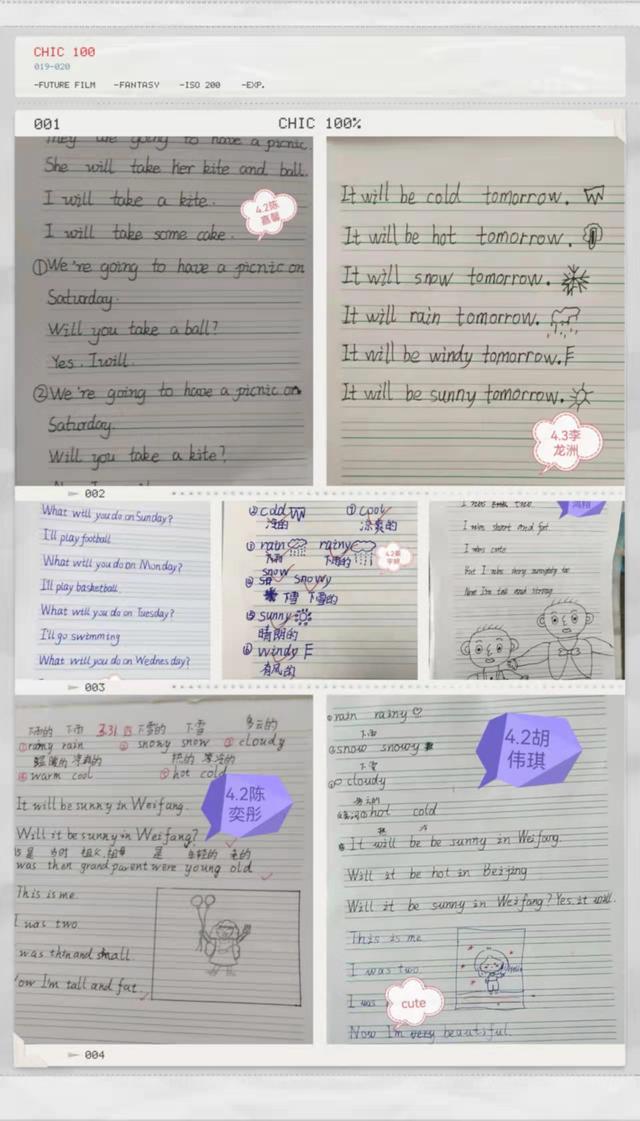 CHIC 100
019-020
-FUTURE FILM -FANTASY -ISO 200 -EXP.
001 CHIC 100%
They are going to have a picnic.
She will take her kite and ball.
I will take a kite.
I will take some cake.
①We're going to have a picnic on
Saturday.
Will you take a ball?
Yes, I will.
②We're going to have a picnic on
Saturday.
Will you take a kite?
4.2陈
嘉馨
It will be cold tomorrow.
It will be hot tomorrow.
It will snow tomorrow.
It will rain tomorrow.
It will be windy tomorrow.
It will be sunny tomorrow.
4.3李
龙洲
002
What will you do on Sunday?
I'll play football
What will you do on Monday?
I'll play basketball
What will you do on Tuesday?
I'll go swimming
What will you do on Wednesday?
cold cool
冷的 凉爽的
rain rainy
下雨 下雨的
snow
snowy
下雪 下雪的
sunny
晴朗的
windy
有风的
I was short and fat.
I was cute
But I was very naughty too
Now I'm tall and strong
003
下雨的 下雨 3.31 下雪的 下雪 多云的
①rainy rain ②snowy snow ③cloudy
④warm cool ⑤hot cold
It will be sunny in Weifang.
Will it be sunny in Weifang?
was then grandparent were young old
This is me.
I was two
was then and small
Now I'm tall and fat.
4.2陈
奕彤
rain rainy
下雨
snow snowy
下雪
cloudy
多云的
hot cold
It will be be sunny in Weifang.
Will it be hot in Beijing
Will it be sunny in Weifang? Yes, it will.
This is me
I was two
I was
Now I'm very beautiful.
4.2胡
伟琪
cute
004